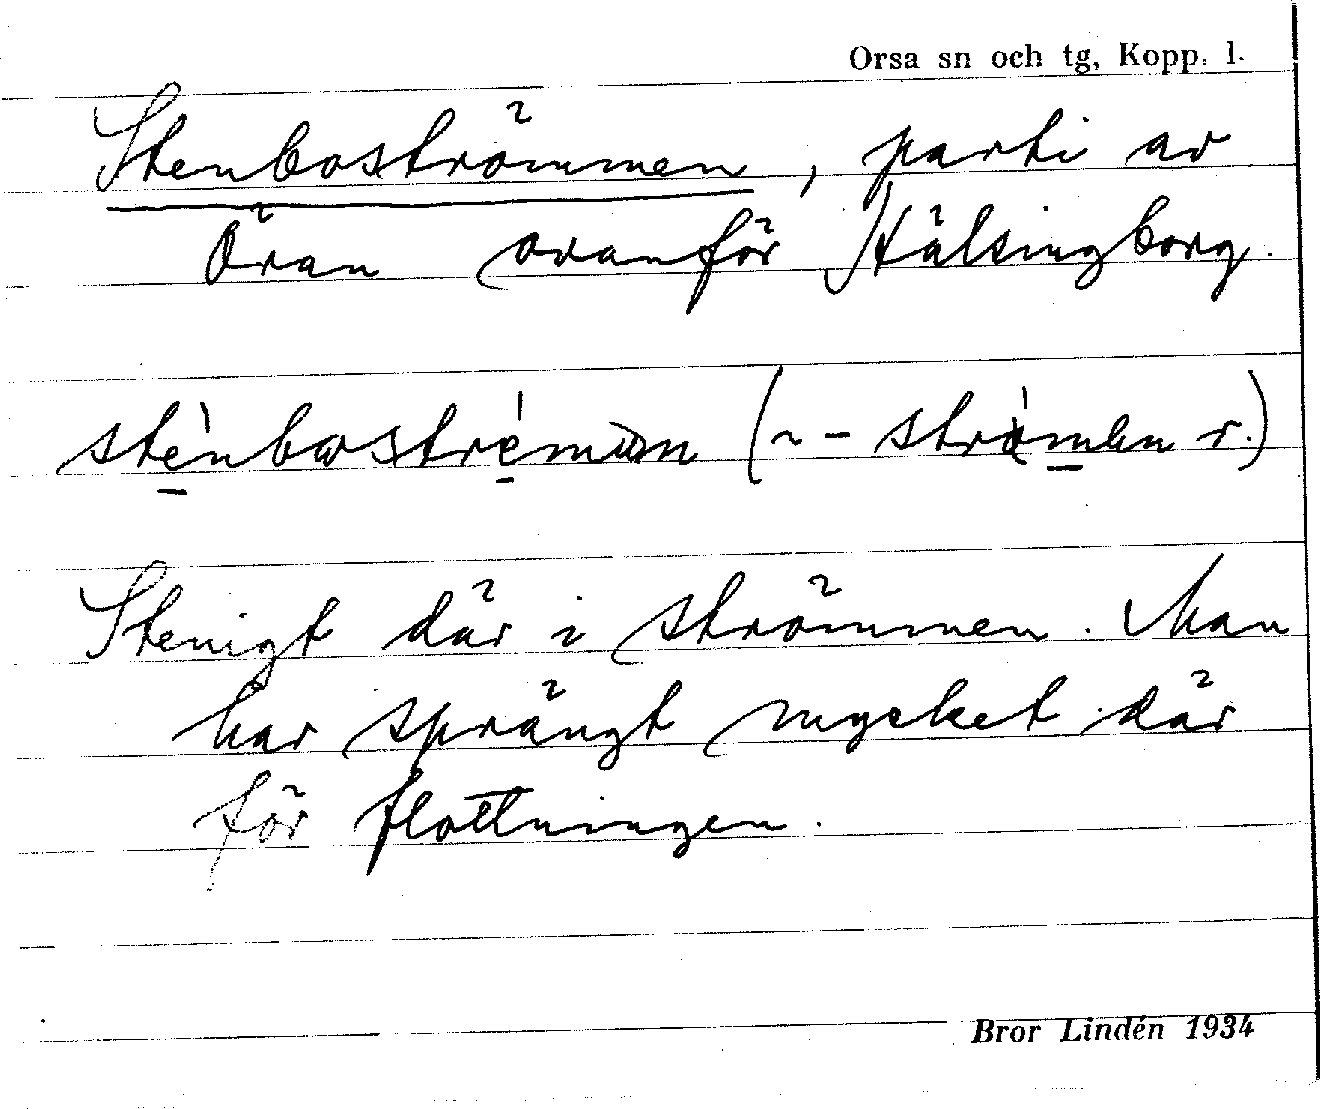 Orsa sn och tg, Kopp. l.
Stenboströmmen, parti av
Öran ovanför Hälsingborg.
Stenigt där i strömmen. Man
har sprängt mycket där
för flottningen.
Bror Lindén 1934